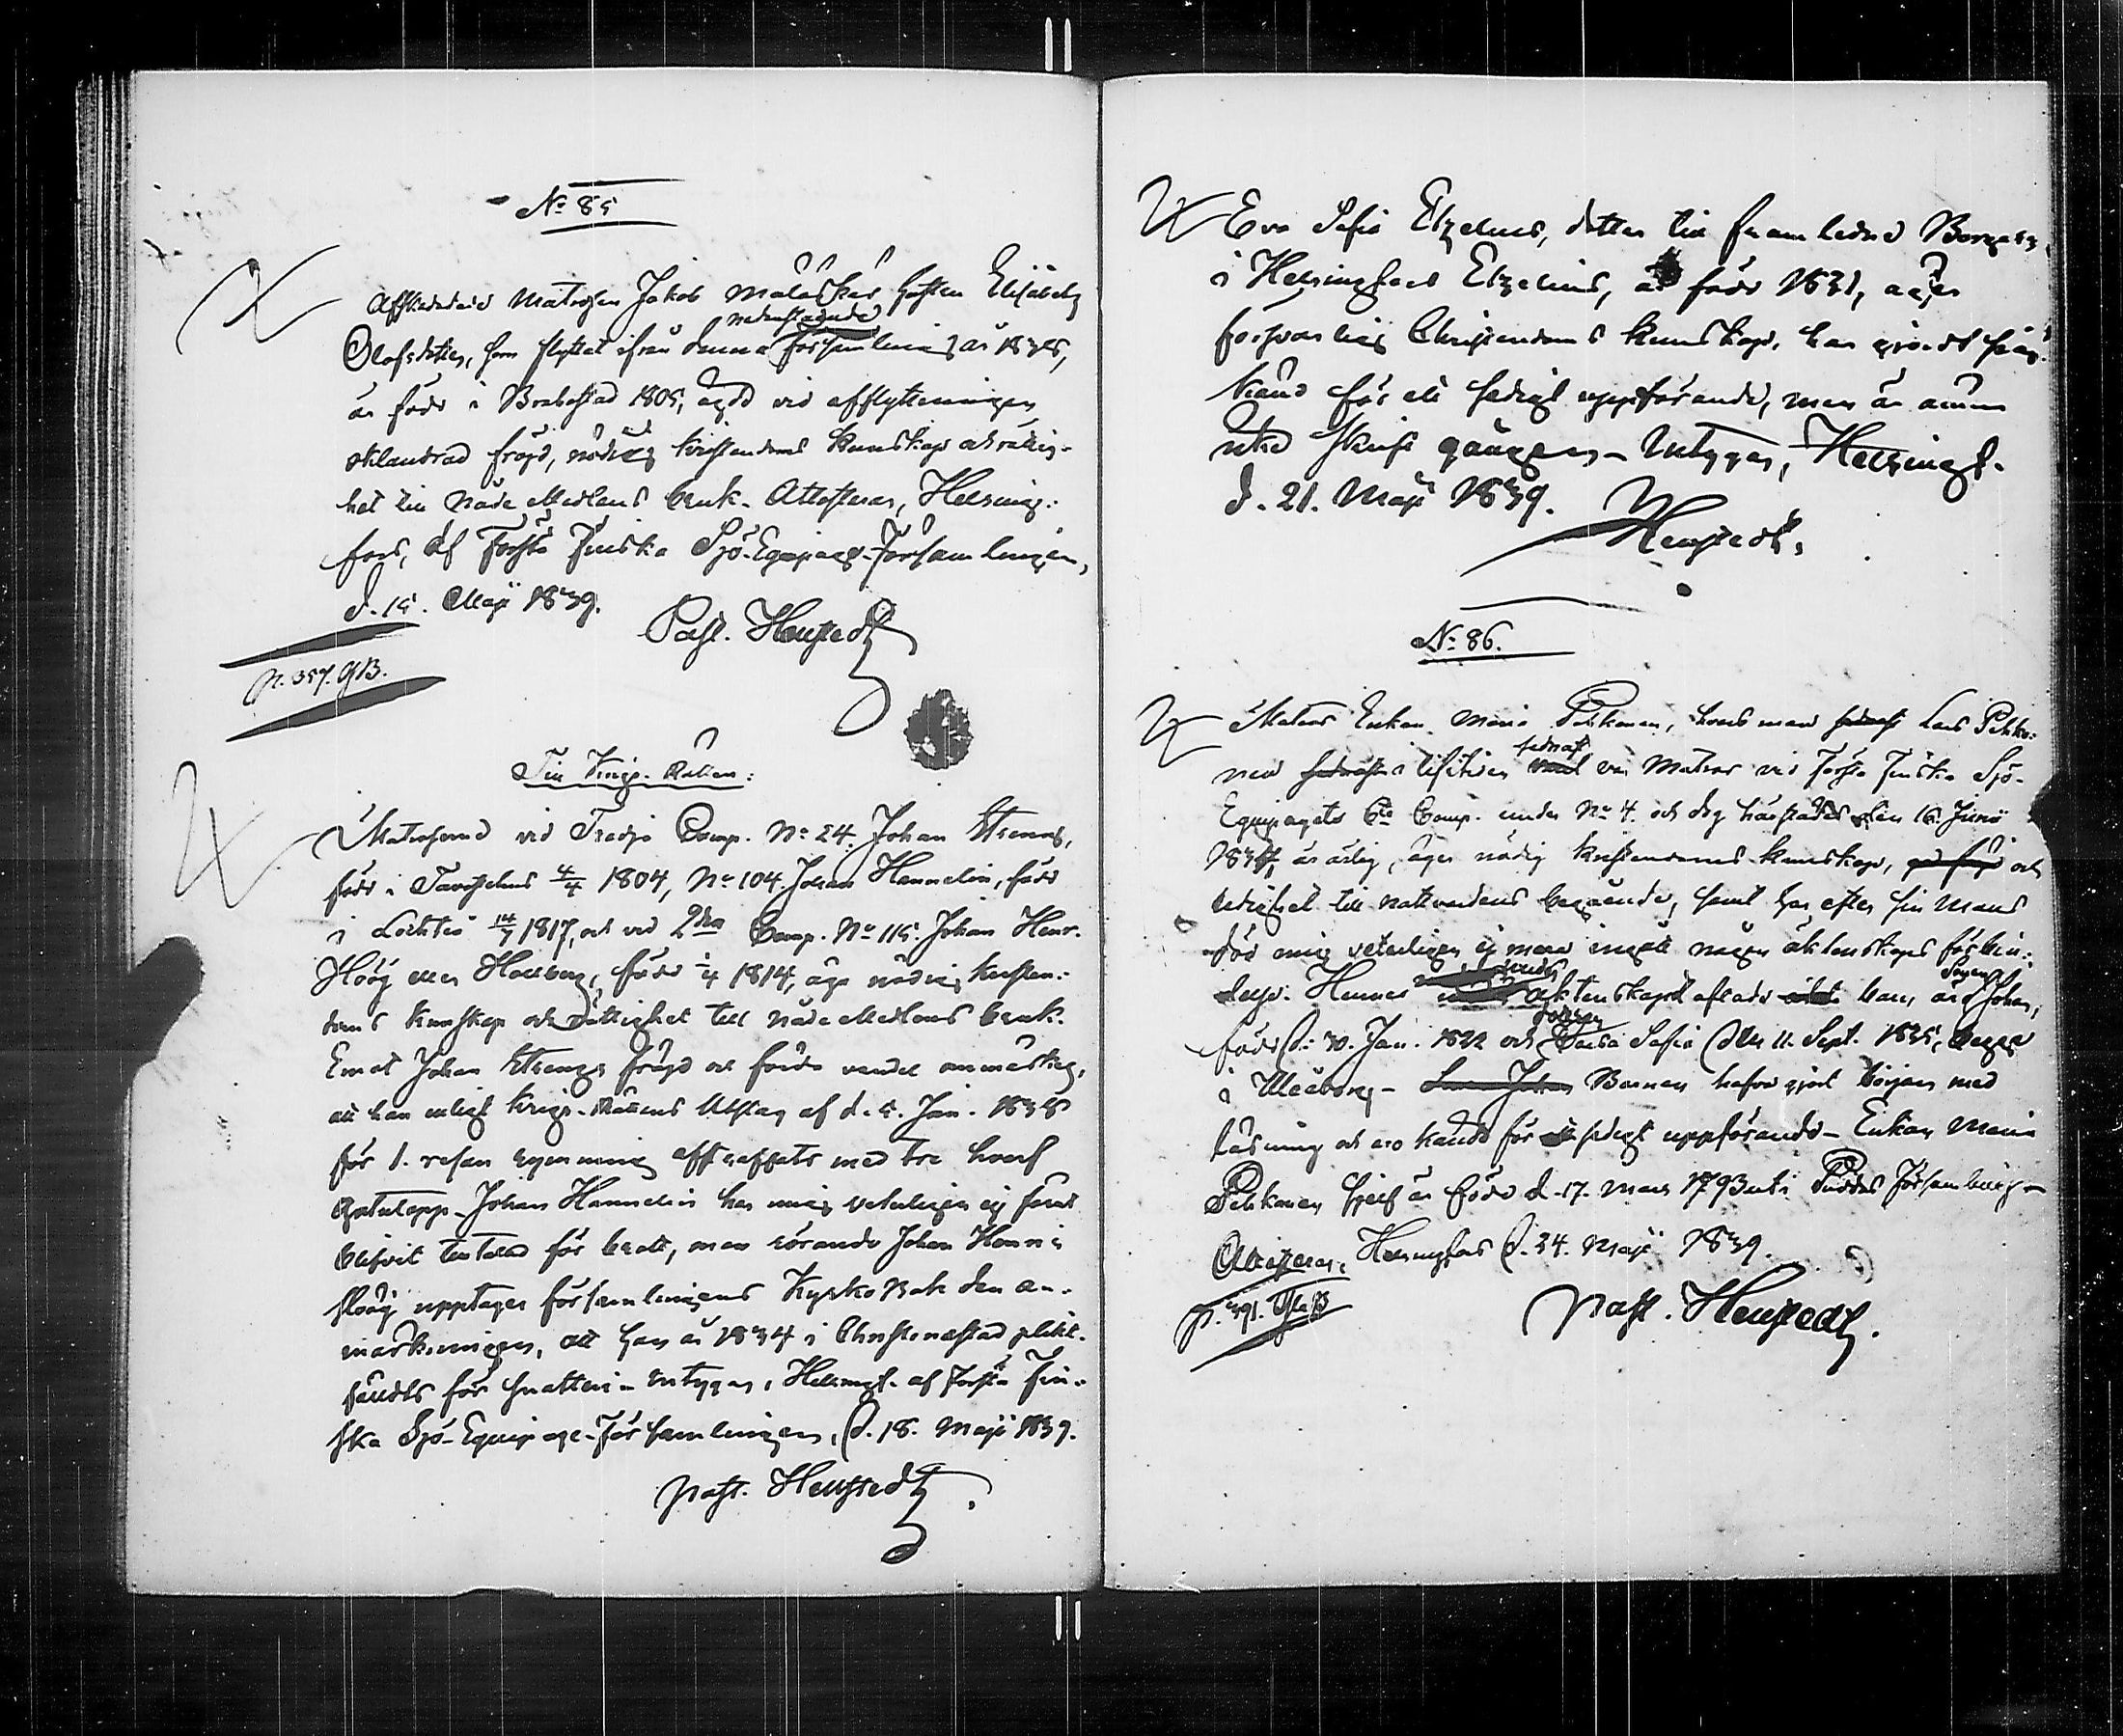 No 85
Afskedade Matrosen Jakob Malaskas hustru Elisabeth
nedanstående
Olofsdotter, som flyttat ifrån denna församling år 1838,
är född i Brahestad 1805, ägde vid afflyttningen
oklandrad frejd, nödig kristendoms kunskap och rättig-
het till Nåde Medlens bruk. Attesterar, Helsing-
fors, af Första Finska Sjö-Equipage-Församlingen,
d. 15. Maji 1839.
Past. Henstedt
p. 357. GB.
Till Krigs-Rätten:
Matroserne vid Tredje Comp. No 24. Johan Streng,
född i Tavastehus 4/4 1804, No 104. Johan Hannelin, född
i Lochteå 14/7 1817, och vid 2dra Comp. No 115. Johan Henr.
Höög eller Hallberg, född 1/4 1814, äga nödig kristen-
doms kunskap och rättighet till Nåde Medlens bruk.
Emot Johan Strengs frejd och förda vandel anmärkes,
att han enligt Krigs-Rättens Utslag af d. 5. Jan. 1838
för 1. resan rymning afstraffats med tre hvarf
Gatulopp. Johan Hannelin har mig veterligen ej förut
blifvit tilltalad för brott, men rörande Johan Henric
Höög upptager församlingens Kyrko Bok den an-
märkningen, att han år 1834 i Christinestad plikt-
fälldts för snatteri. Intygar, Helsingf. af Första Fin-
ska Sjö-Equipage-Församlingen, d. 18. Maji 1839.
Past. Henstedt.
Eva Sofia Etzelius, dotter till framledne Borgaren
i Helsingfors Etzelius, är född 1821, äger
försvarlig Christendoms kunskap, har gjordt sig
känd för ett sedigt uppförande, men är ännu
icke skrift gången. Intygar, Helsingf.
d. 21. Maji 1839.
Henstedt.
No 86.
Matros Enkan Maria Pehkonen, hvars man sednast Lars Pehko-
sednast
nen i lifstiden var Matros vid Första Finska Sjö-
Equipagets 6te Comp. under No 4. och dog härstädes den 16. Junii
1837, är ärlig, äger nödig kristendoms kunskap, och
ledighet till nattvardens begående, samt har efter sin mans
död mig veterligen ej mera ingått någon äktenskaps förbin-
Sonen
delse. Hennes äktenskapet aflade barn, äro Johan,
dottren
född d. 30. Jan. 1822 och Maria Sofia den 11. Sept. 1835, begge
i Uleåborg. Barnen hafva gjort början med
läsning och äro kända för sedigt uppförande. Enkan Maria
Pehkonen sjelf är född d. 17. Mars 1793 uti Pudas Församling.
Attesterar, Helsingfors d. 24. Maji 1839.
p. 391.
Past. Henstedt.